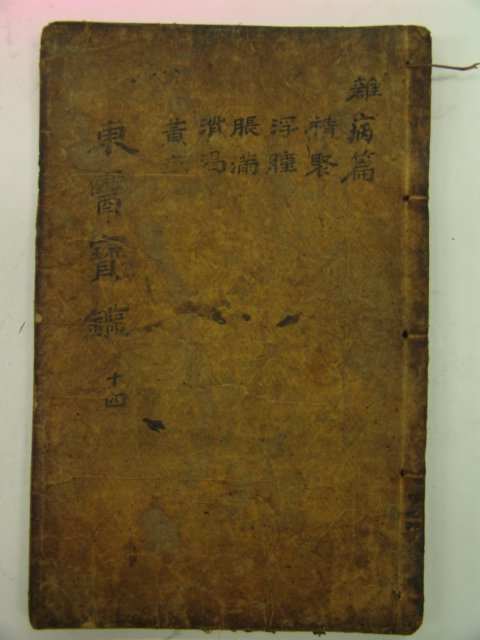 雜病篇
積聚
浮腫
脹滿
消渴
黃疸
東醫寶鑑 十四